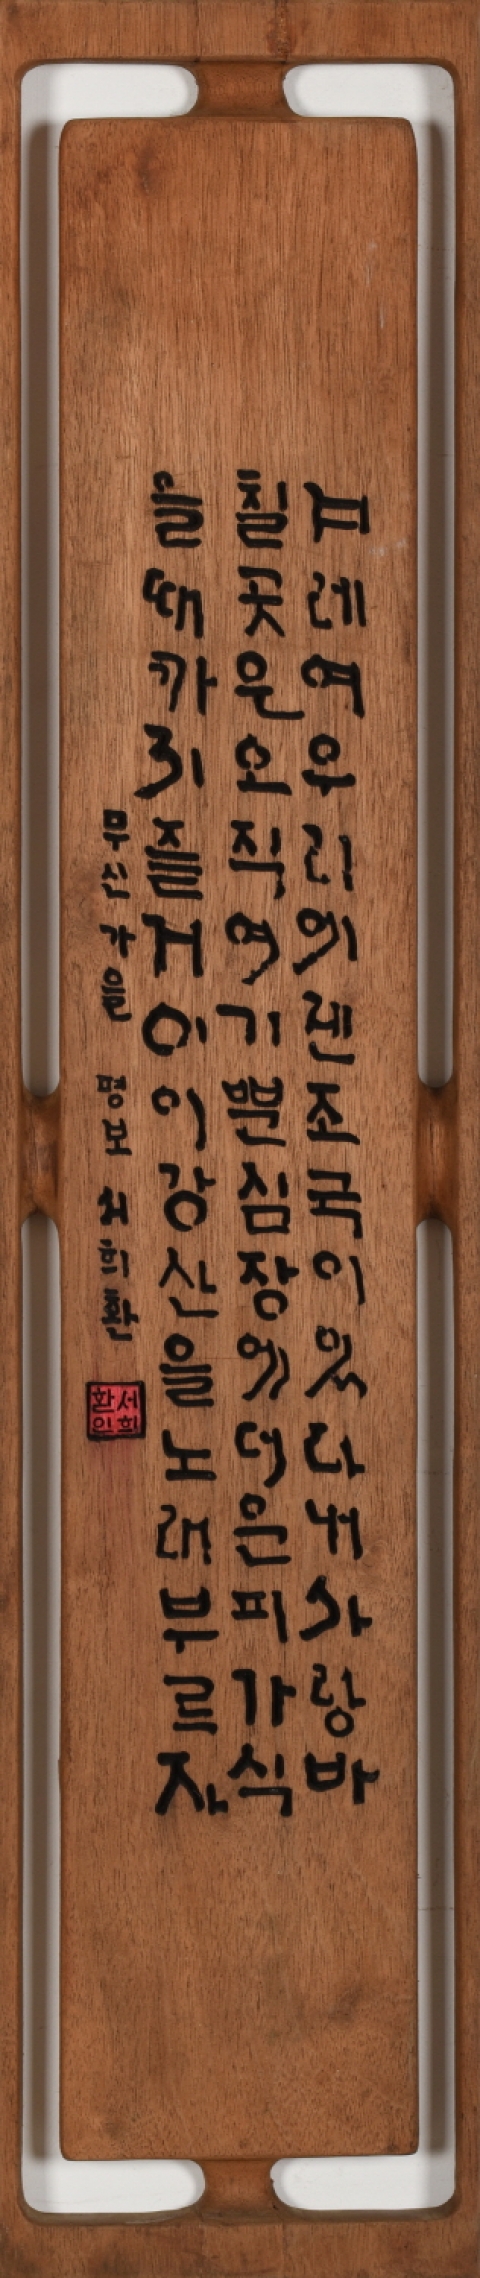 겨레여우리에겐조국이있다내사랑바
칠곳은오직여기뿐심장에더운피가식
을때까지즐거이이강산을노래부르자
무신가을 평보 서희환
서희환인